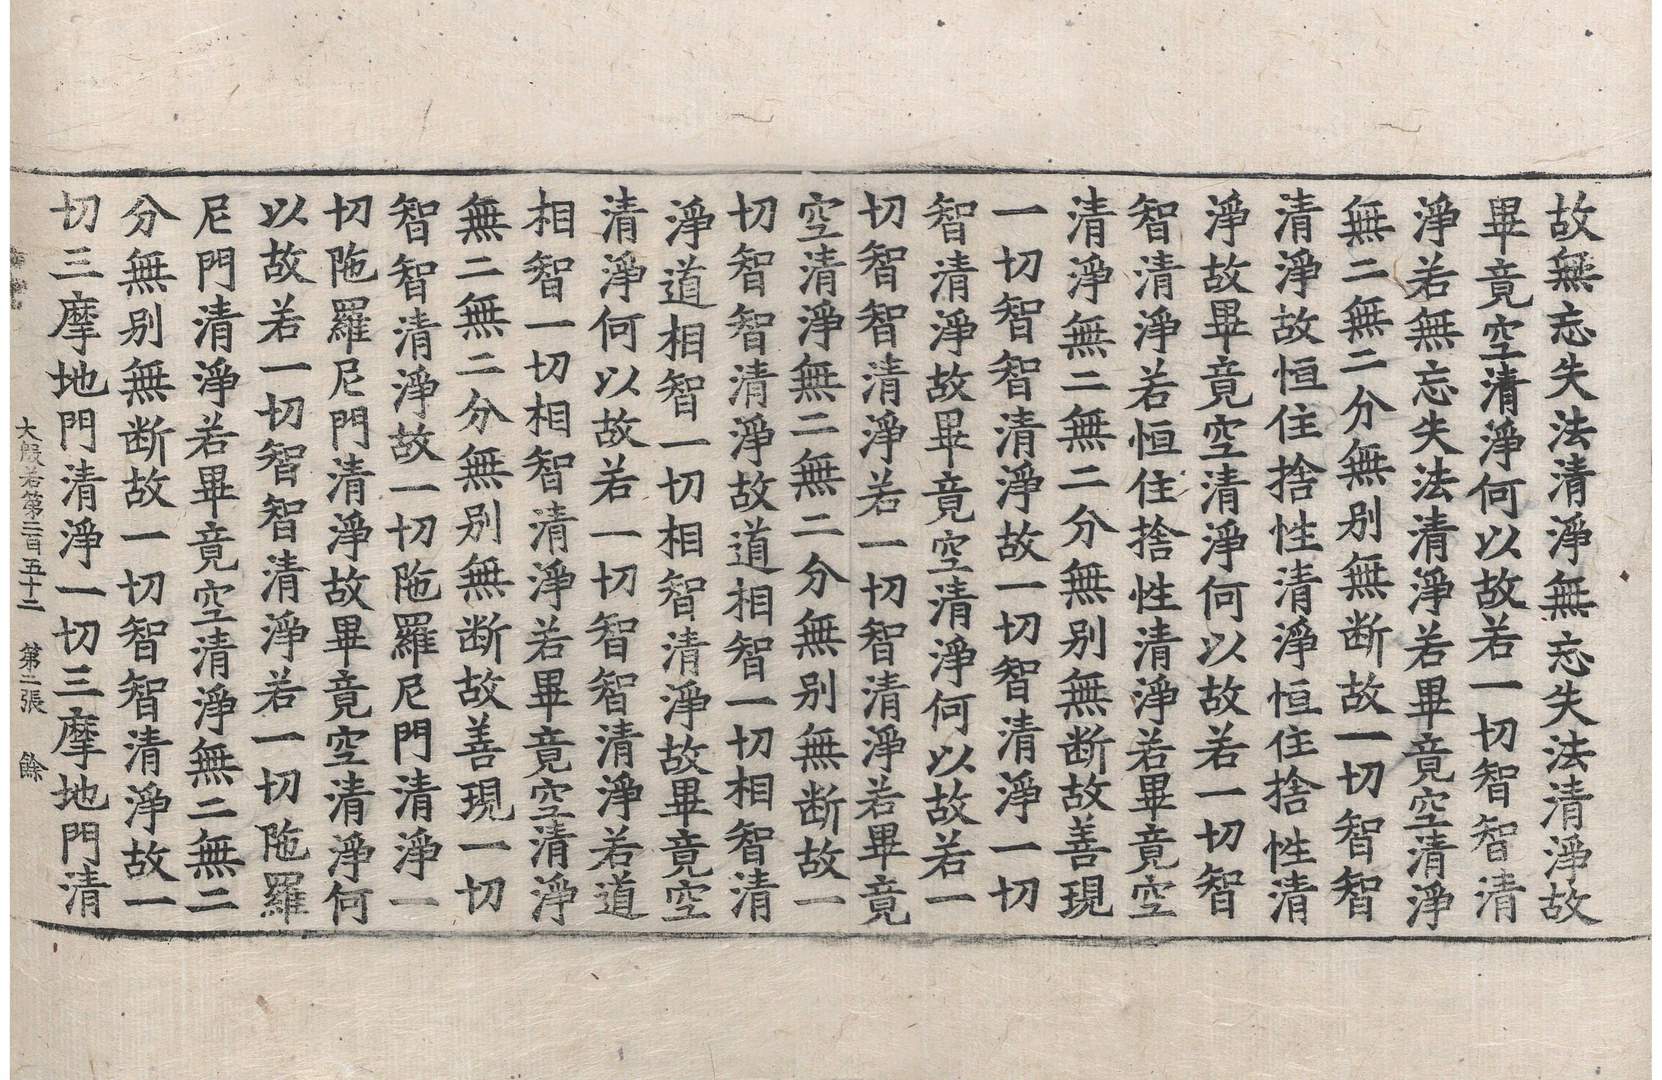 故無忘失法清淨無忘失法清淨故
畢竟空清淨何以故若一切智智清
淨若無忘失法清淨若畢竟空清淨
無二無二分無别無断故一切智智
清淨故恒住捨性清淨恒住捨性清
淨故畢竟空清淨何以故若一切智
智清淨若恒住捨性清淨若畢竟空
清淨無二無二分無别無断故善現
一切智智清淨故一切智清淨一切
智清淨故畢竟空清淨何以故若一
切智智清淨若一切智清淨若畢竟
空清淨無二無二分無别無断故一
切智智清淨故道相智一切相智清
淨道相智一切相智清淨故畢竟空
清淨何以故若一切智智清淨若道
相智一切相智清淨若畢竟空清淨
無二無二分無别無断故善現一切
智智清淨故一切陁羅尼門清淨一
切陁羅尼門清淨故畢竟空清淨何
以故若一切智智清淨若一切陁羅
尼門清淨若畢竟空清淨無二無二
分無别無断故一切智智清淨故一
切三摩地門清淨一切三摩地門清
大般若第二百五十二 第二張 餘